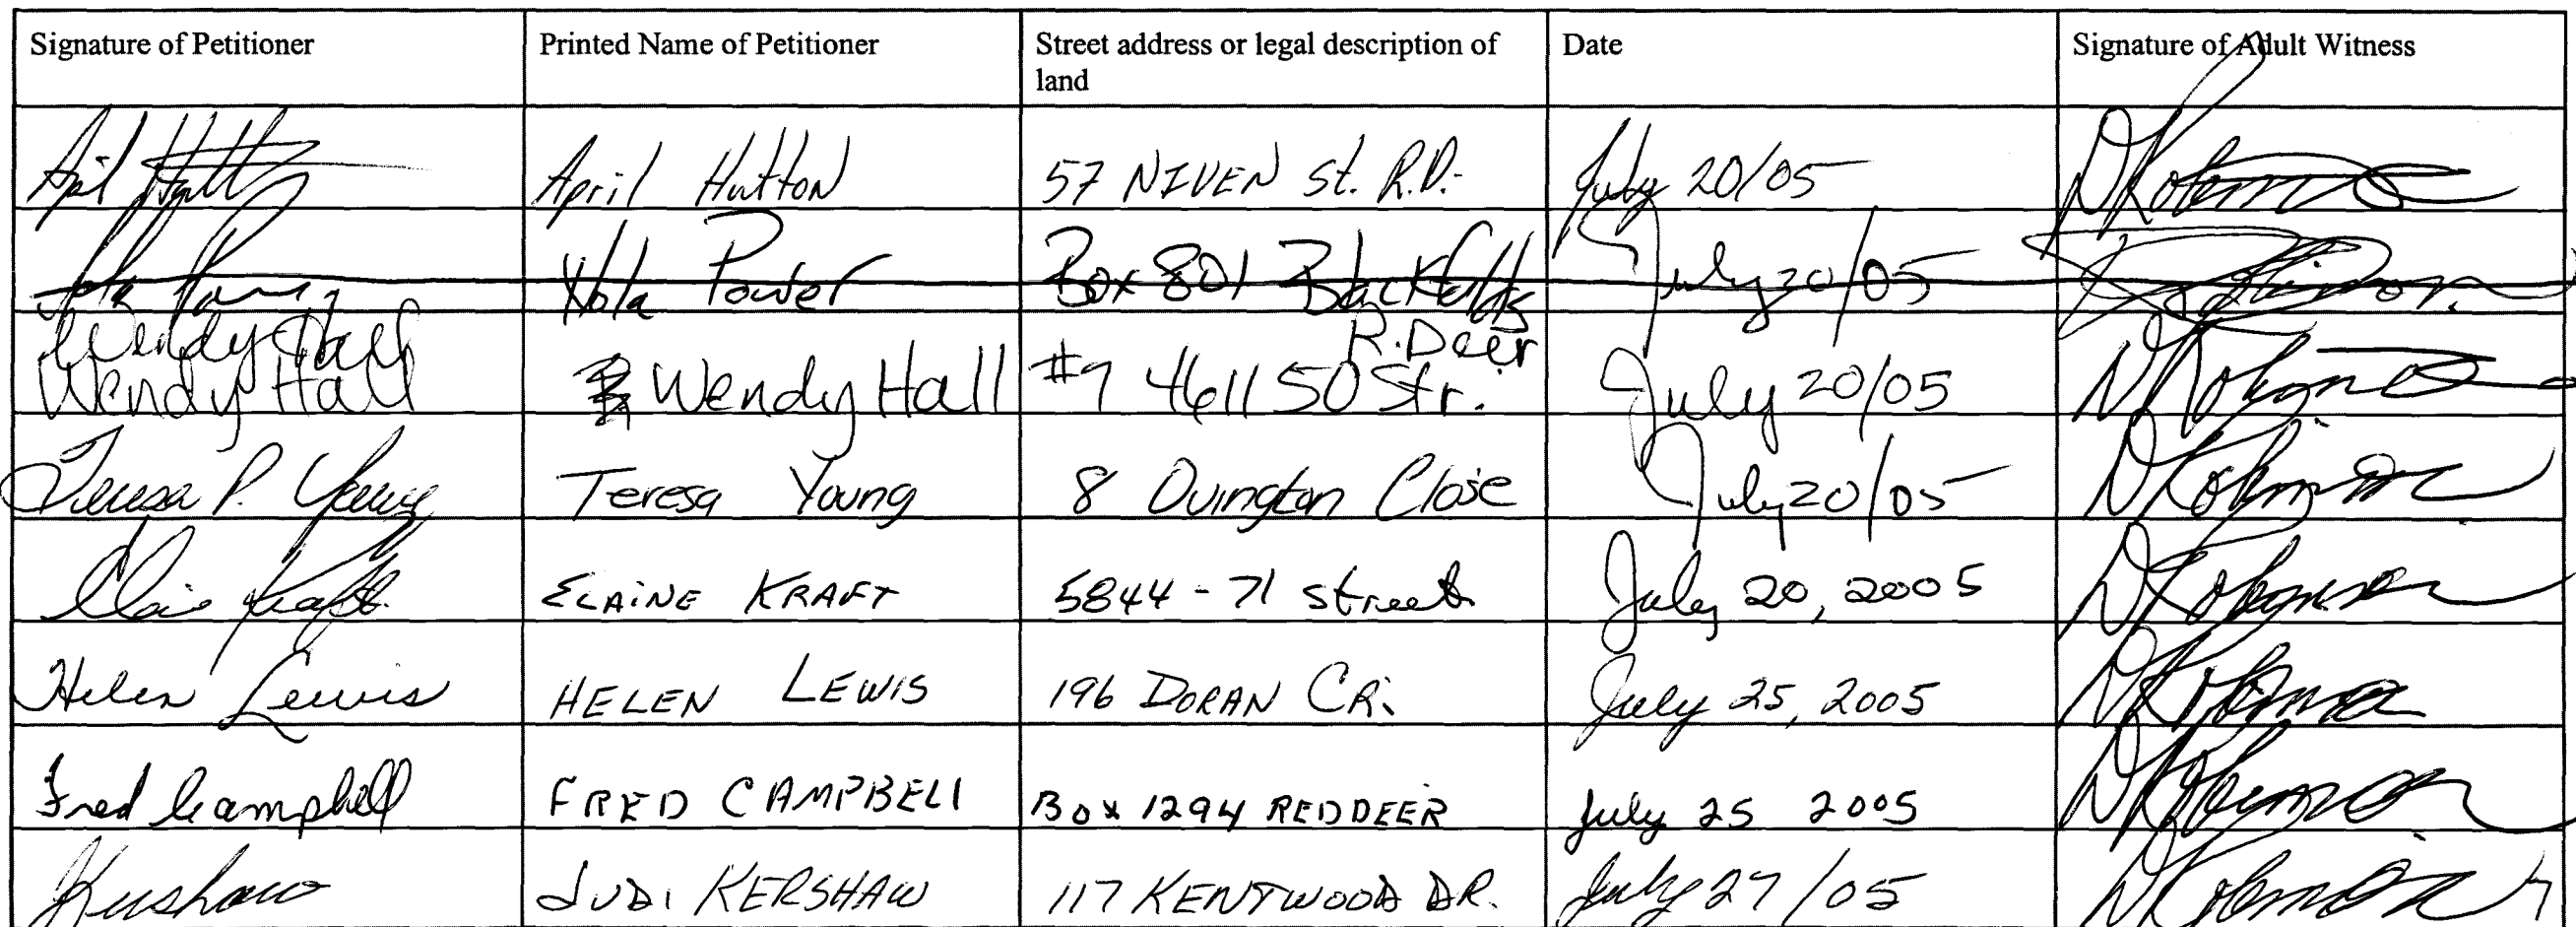 Signature of Petitioner Printed Name of Petitioner Street address or legal description of Date Signature of Adult Witness
land
April Hutton 57 NIVEN St. R.D. July 20/05
Nola Power Box 801 Blackfalds July 20/05
Wendy Hall R.Deer
Wendy Hall Wendy Hall #7 4611 50 Str. July 20/05
Teresa P. Young Teresa Young 8 Ovington Close July 20/05
Elaine Kraft ELAINE KRAFT 5844 - 71 street July 20, 2005
Helen Lewis HELEN LEWIS 196 DORAN CR. July 25, 2005
Fred Campbell FRED CAMPBELL Box 1294 RED DEER July 25 2005
Kershaw JUDI KERSHAW 117 KENTWOOD DR. July 27/05